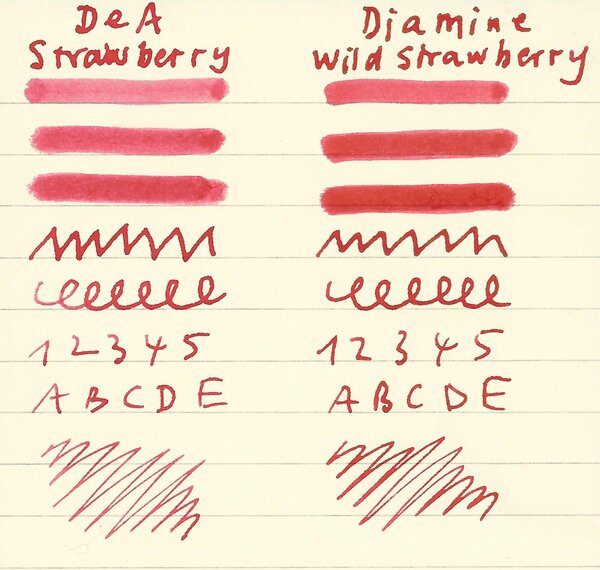 DeA
Strawberry
Diamine
Wild Strawberry
1 2 3 4 5
1 2 3 4 5
A B C D E
A B C D E